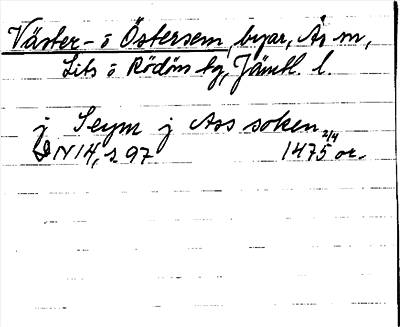 Väster- o Östersem, byar, Ås sn,
Lits o Rödöns tg, Jämtl. l.
j Seym j Ass soken
DN 14, s 97 1475 2/4 or.